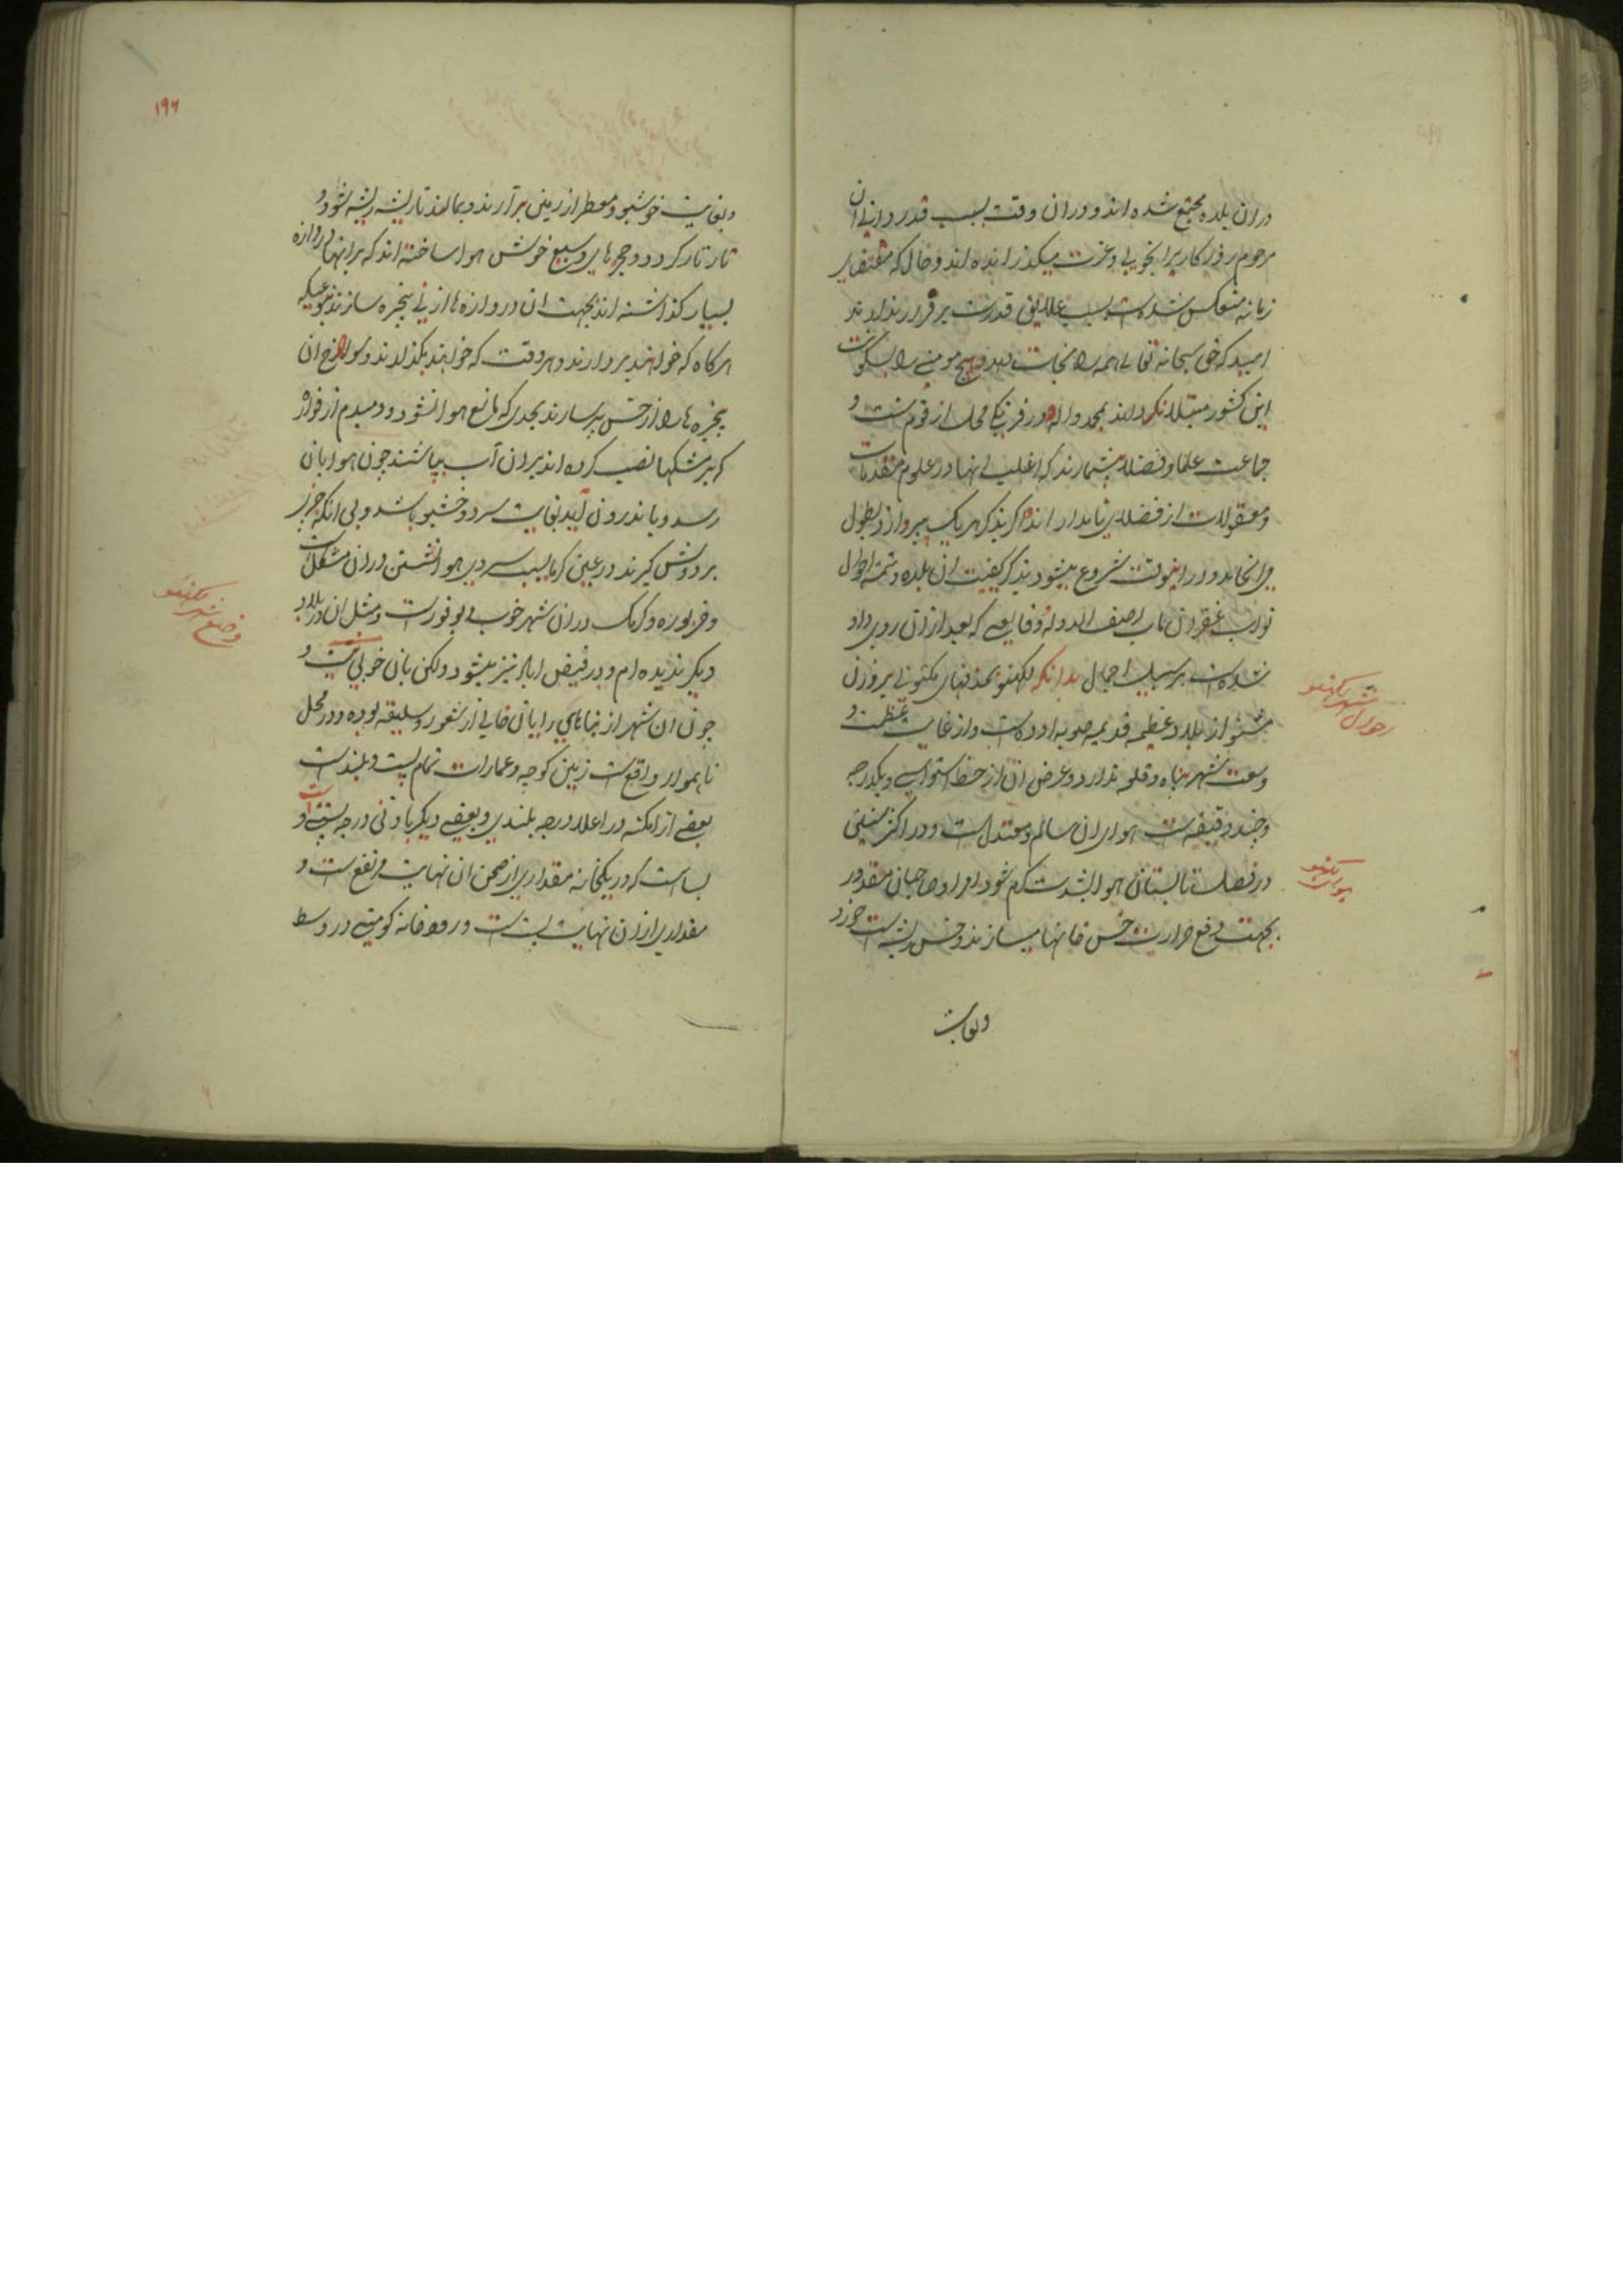 دران بلده مجتمع شده اند و دران وقت بسبب قدردانی ان
مرحوم روزکار را بخوبی و عزت میکذرانیده اند و حال که مقتضای
زمانه منعکس شده است بسبب علایق قدرت بر فرار ندارند
امید که حق سبحانه تعالی همه را نجات دهد و هیچ مومنی را بسکونت
این کشور مبتلا نکرداند بمحمد واله و در فرنکی محل از قوم سنت و
جماعت علما و فضلا بیشمارند که اغلب انها در علوم متقدمات
و معقولات از فضلای نامدار اند اکر بذکر هریک پردازد بطول
می انجامد و دراینوقت شروع میشود بذکر کیفیت ان بلده و تتمه احوال
نواب غفران ماب اصف الدوله و وقایعی که بعد ازان روی داد
شده است بر سبیل اجمال بدانکه لکهنو
از بلاد عظیمه قدیمه صوبه اوده است و از غایت عظمت و
وسعت شهر پناه و قلعه ندارد و عرض ان از خط استوا و یکدرجه
و چند دقیقه است هوای ان سالم و معتدل است و در اکثر سنین
در فصل تابستان هوا بشدت کرم شود امرا و صاحبان مقدور
بجهت دفع حرارت خس خانها میسازند و خس ریشه است خورد
وبغایت
احوال شهر لکهنو
هوای لکهنو
۱۹۶
وبغایت خوشبو و معطر از زمین برآرند و بمالند تا ریشه ریشه شود و
تار تار کردد و حجرهای وسیع خوش هوا ساخته اند که برانها دروازه
بسیار کذاشته اند بجهت ان دروازه ها از نی پنجره سازند بنوعیکه
هرکاه که خواهند بردارند و هروقت که خواهند بکذارند و سوراخ ان
پنجره ها را از خس پر سازند بحدی که مانع هوا نشود و دمبدم از فواره
که بر مشکها نصب کرده اند بران آب بپاشند چون هوا بان
رسد و باندرون آید بغایت سرد و خوشبو باشد و بی انکه چیزی
بر دوش کیرند در عین کرما بسبب سردی هوا نشستن دران مشکل است
و خربوزه و کرمک دران شهر خوب و بوفور است و مثل ان در بلاد
دیکر ندیده ام و در فیض اباد نیز میشود ولکن بان خوبی نیست و
چون ان شهر از بناهای رایان خالی از شعور و سلیقه بوده و در محل
ناهموار واقع است زمین کوچه و عمارات تمام پست و بلند است
بعضی از امکنه در اعلا درجه بلندی و بعضی دیکر با دنی درجه پستی است و
بسا است که در یکخانه مقداری از صحن ان نهایت مرتفع است و
مقداری ازان نهایت پست است و رودخانه کومتی در وسط
وضع شهر لکهنو